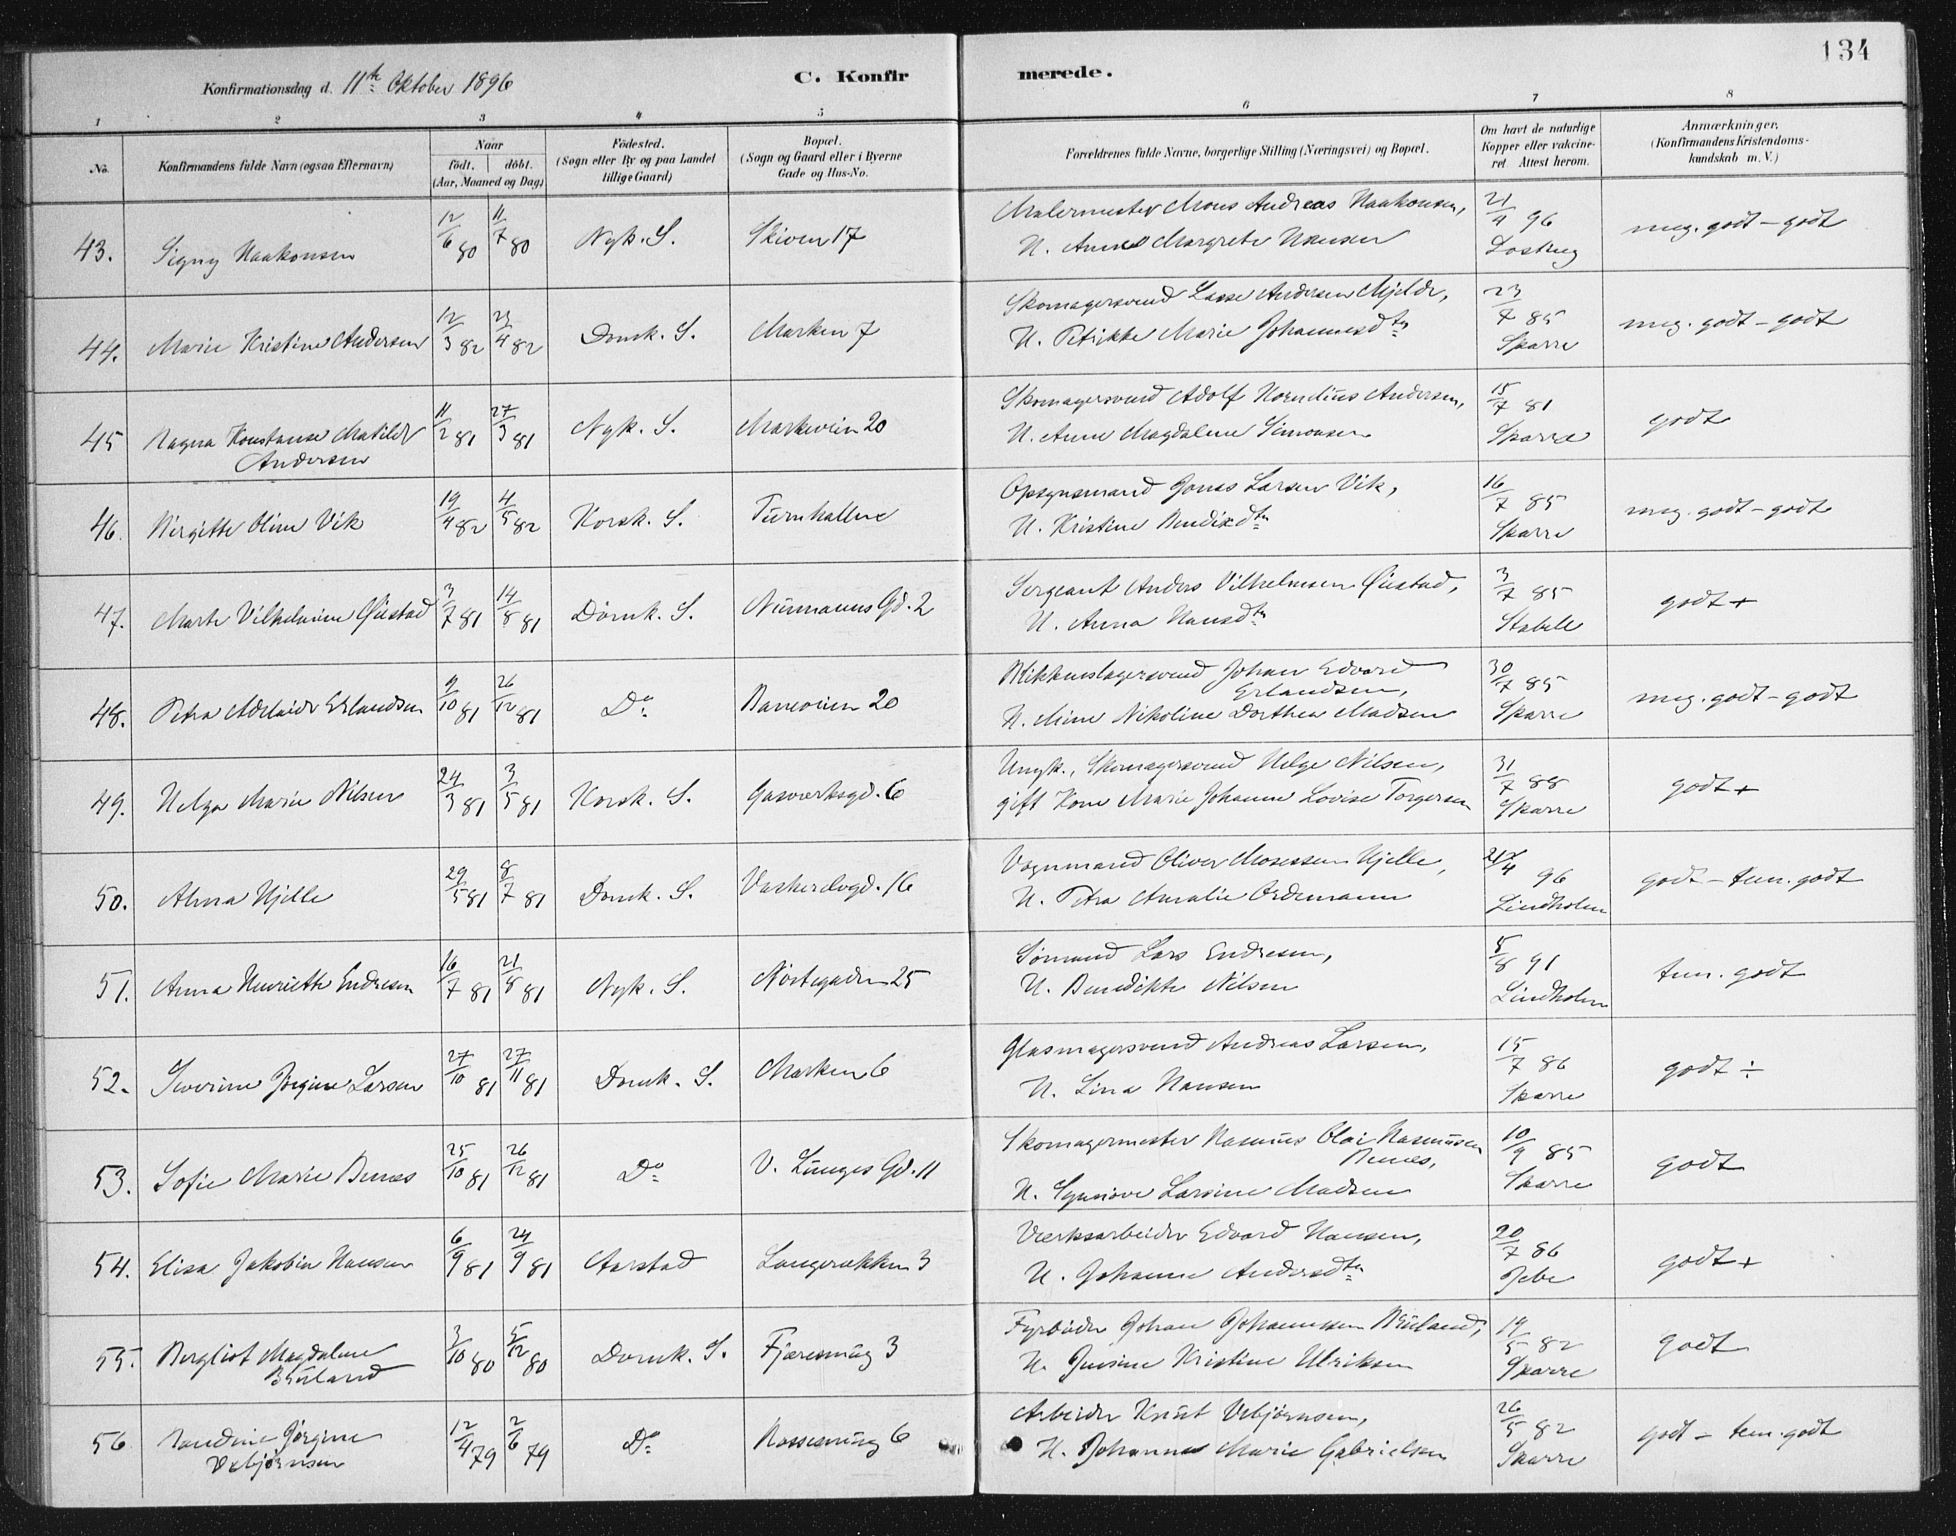 134
Konfirmationsdag d. 11te Oktober 1896
C. Konfirmerede.
1 2 3 4 5 6 7 8
No. Konfirmandens fulde Navn (ogsaa Efternavn) Naar födt, döbt. (Aar, Maaned og Dag) Födested. (Sogn eller By og paa Landet tillige Gaard) Bopæl. (Sogn og Gaard eller i Byerne Gade og Hus-No. Forældrenes fulde Navne, borgerlige Stilling (Næringsvei) og Bopæl. Om havt de naturlige Kopper eller vakcineret Attest herom. Anmærkninger. (Konfirmandens Kristendomskundskab m. V.)
43. Signy Haakonsen 12/6 80 11/7 80 Nyk. S. Skiven 17 Malermester Mons Andreas Haakonsen, 21/4 96 meg. godt - godt
H. Anne Margrete Hansen
44. Marie Kristine Andersen 12/3 82 23/4 82 Domk. S. Marken 7 Skomagersvend Lasse Andersen Mjelde, 23/7 85 Sparre meg. godt - godt
H. Petrikke Marie Johannesdtr
45 Ragna Konstanse Matilde 11/2 81 27/3 81 Nyk. S. Markeveien 20 Skomagersvend Adolf Kornelius Andersen, 15/7 81 Sparre godt
Andersen H. Anne Magdalene Simonsen
46. Birgitte Oline Vik 19/4 82 4/5 82 Korsk. S. Turnhallen Opsynsmand Jonas Larsen Vik, 16/7 85 Sparre meg. godt - godt
H. Kristine Bendixdtr
47. Marte Vilhelmine Øiestad 3/7 81 14/8 81 Domk. S. Neumanns Gd. 2 Sergeant Anders Vilhelmsen Øiestad, 3/7 85 Stabell godt +
H. Anna Hansdtr
48. Petra Adelaide Erlandsen 9/10 81 26/12 81 Do Baneveien 20 Blikkenslagersvend Johan Edvard 30/7 85 Sparre meg. godt - godt
Erlandsen,
H. Mine Nikoline Dorthea Madsen
49. Helga Marie Nilsen 24/3 81 3/5 81 Korsk. S. Gasverksgd. 6 Ungk., Skomagersvend Helge Nilsen, 31/7 88 Sparre godt +
gift Kone Marie Johanne Lovise Torgersen
50. Alma Hjelle 29/5 81 8/7 81 Domk. S. Vaskerelvgd. 16 Vognmand Oliver Mosessen Hjelle, 96 Lindholm godt - tem. godt
H. Petra Amalie Ordemann
51. Anna Henriette Endresen 16/7 81 21/8 81 Nyk. S. Nøstegaden 25 Sømand Lars Endresen, 5/8 91 Lindholm tem. godt
H. Benedikte Nilsen
52. Severine Jørgine Larsen 27/10 81 27/11 81 Domk. S. Marken 6 Glasmagersvend Andreas Larsen, 15/7 86 Sparre godt ÷
H. Lina Hansen
53. Sofie Marie Benæs 25/10 81 26/12 81 Do V. Lunges Gd. 11 Skomagermester Rasmus Olai Rasmussen 10/9 85 Sparre godt
Benæs,
H. Synniøve Larsine Madsen
54. Elisa Jakobia Hansen 6/9 81 24/9 81 Aarstad Langerækken 3 Verksarbeider Edvard Hansen, 20/7 86 Jebe godt +
H. Johanne Andersdtr
55. Bergliot Magdalene 3/10 80 5/12 80 Domk. S. Fjæresmug 3 Fyrbøder Johan Johannessen Bruland, 19/5 82 Sparre godt
Bruland H. Jensine Kristine Ulriksen
56. Bendine Jørgine 12/4 79 2/6 79 Do Rossesmug 6 Arbeider Knut Vebjørnsen, 26/5 82 Sparre godt - tem. godt
Vebjørnsen H. Johanne Marie Gabrielsen